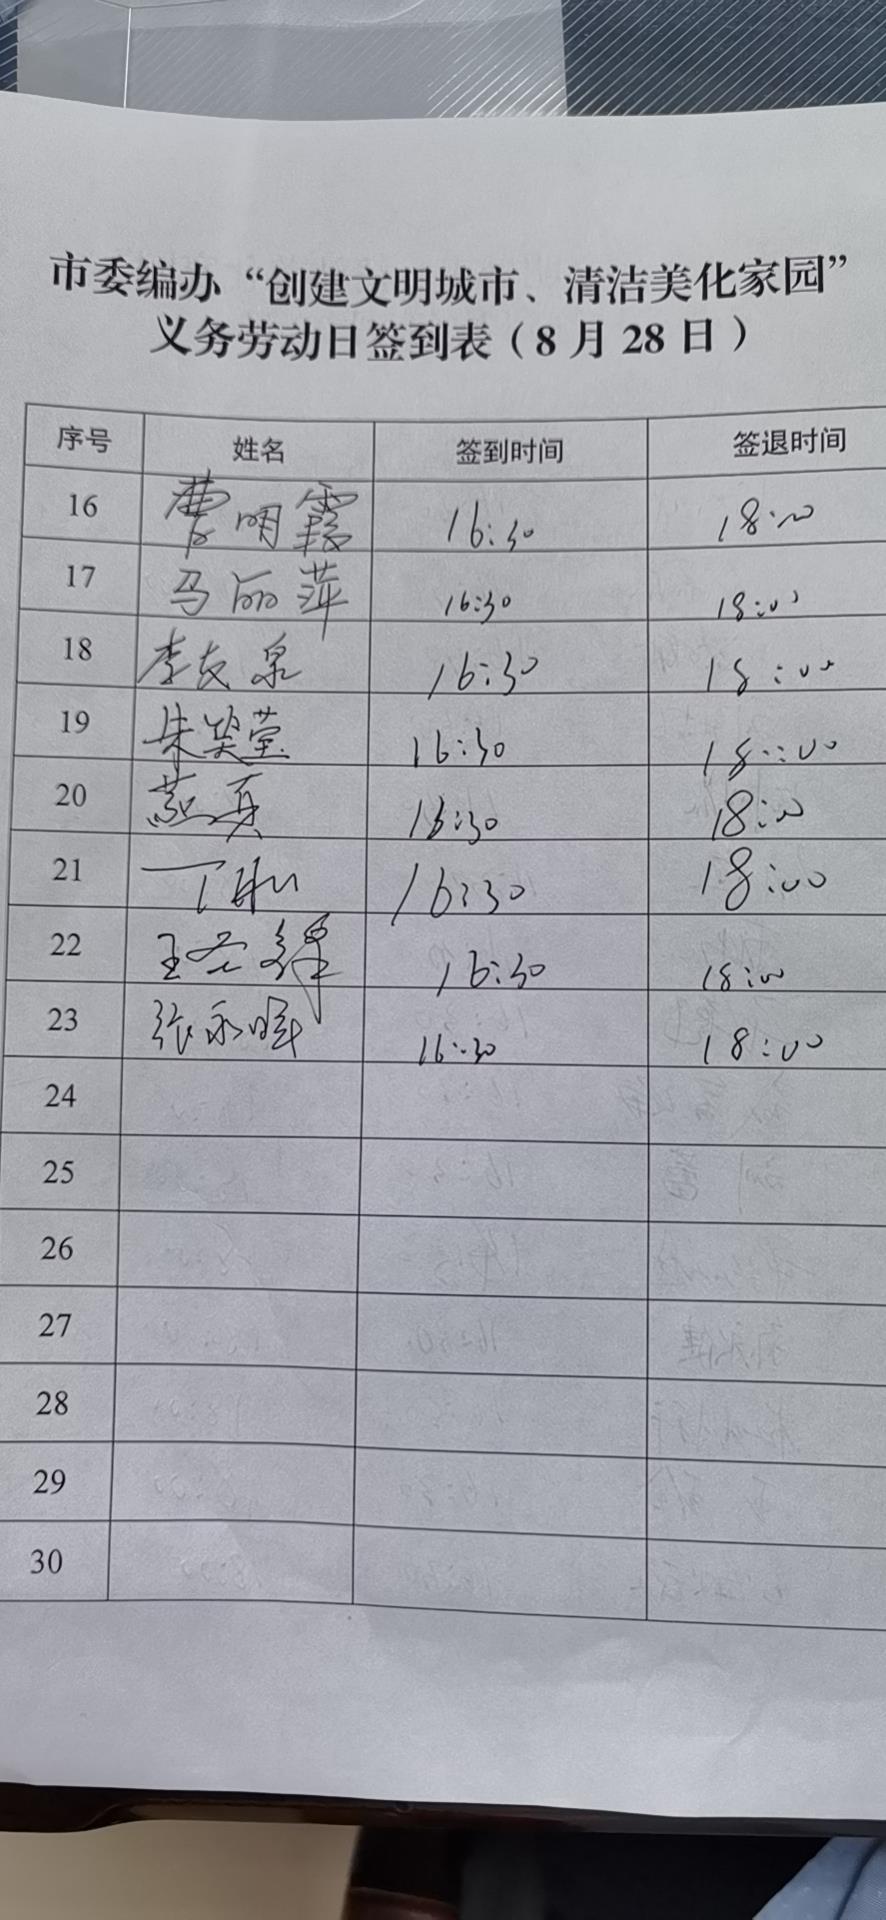 市委编办“创建文明城市、清洁美化家园”
义务劳动日签到表（8月28日）
序号 姓名 签到时间 签退时间
16 曹明霞 16:30 18:00
17 马丽萍 16:30 18:00
18 李友泉 16:30 18:00
19 朱笑莹 16:30 18:00
20 16:30 18:00
21 丁 16:30 18:00
22 王圣锋 16:30 18:00
23 张永晖 16:30 18:00
24
25
26
27
28
29
30